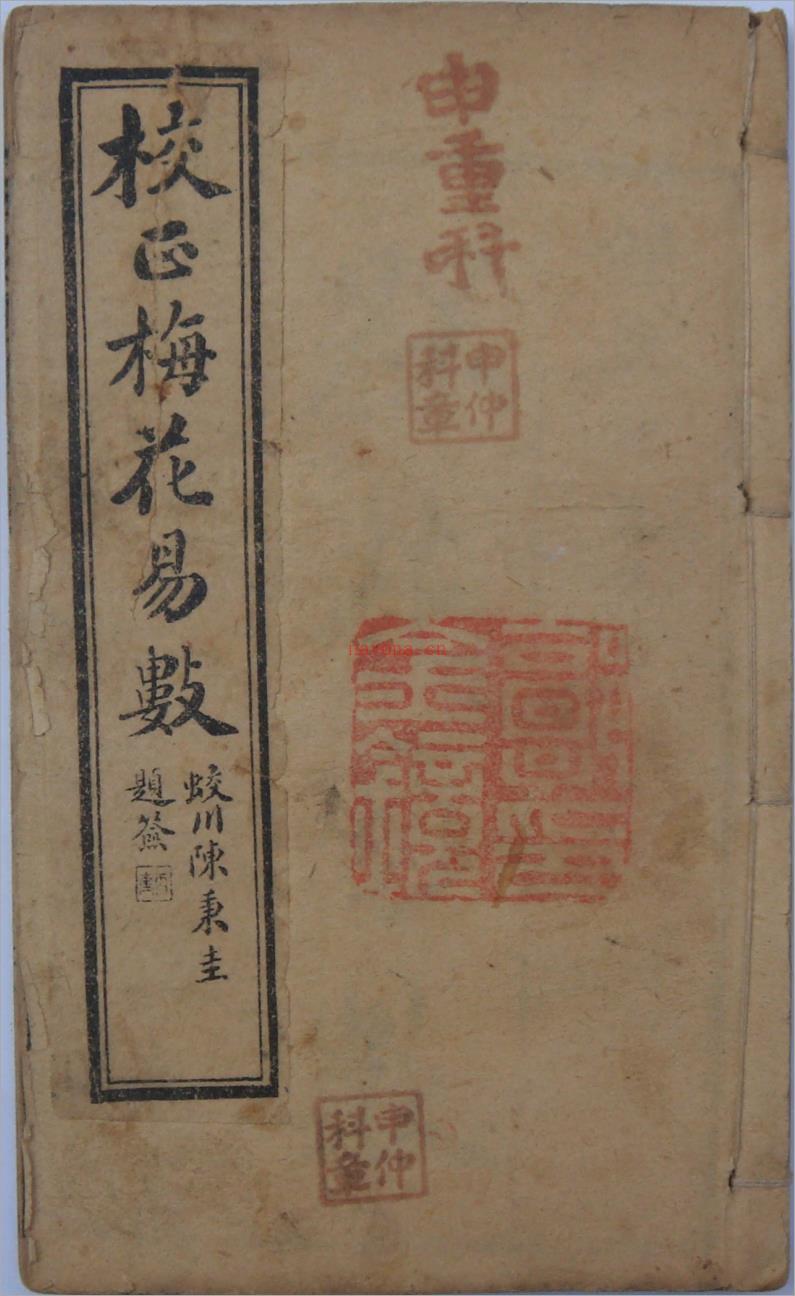 申重科
申仲
科章
校正梅花易數
蛟川陳秉圭
題簽
nayona.cn
申仲
科章